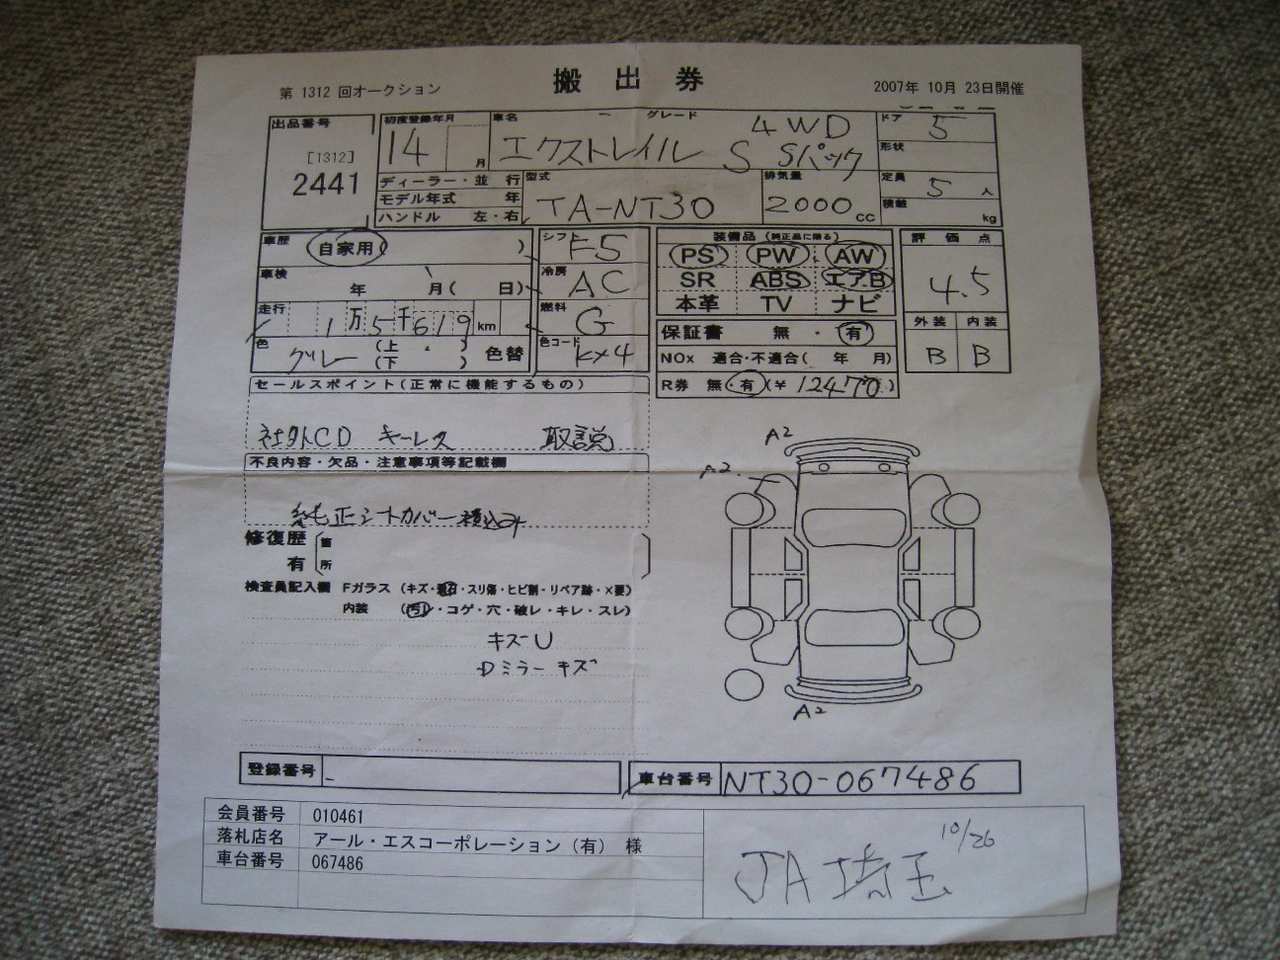 第 1312 回オークション 搬出券 2007年 10月 23日開催
出品番号 初度登録年月 車名 グレード ドア
[1312] 14 月 エクストレイル 4WD S Sパック 5
2441 形状
ディーラー・並行 型式 排気量 定員 5人
モデル年式 年 TA-NT30 2000cc 積載 kg
ハンドル 左・右
車歴 自家用( ) シフト F5 装備品(純正品に限る) 評価点
PS PW AW
車検 年 月( 日) 冷房 AC SR ABS エアB 4.5
本革 TV ナビ
走行 1万5千619km 燃料 G 保証書 無・有 外装 内装
色 グレー (上・下) 色替 色コード KX4 NOx 適合・不適合( 年 月) B B
セールスポイント(正常に機能するもの) R券 無・有(¥12470)
社外CD キーレス 取説
不良内容・欠品・注意事項等記載欄
純正シートカバー積込み
修復歴 箇
有 所
検査員記入欄 Fガラス (キズ・飛石・スリ傷・ヒビ割・リペア跡・×要)
内装 (汚レ・コゲ・穴・破レ・キレ・スレ)
キズU
Dミラーキズ
A2
A2
A2
登録番号 車台番号 NT30-067486
会員番号 010461
落札店名 アール・エスコーポレーション(有) 様
車台番号 067486
JA埼玉 10/26